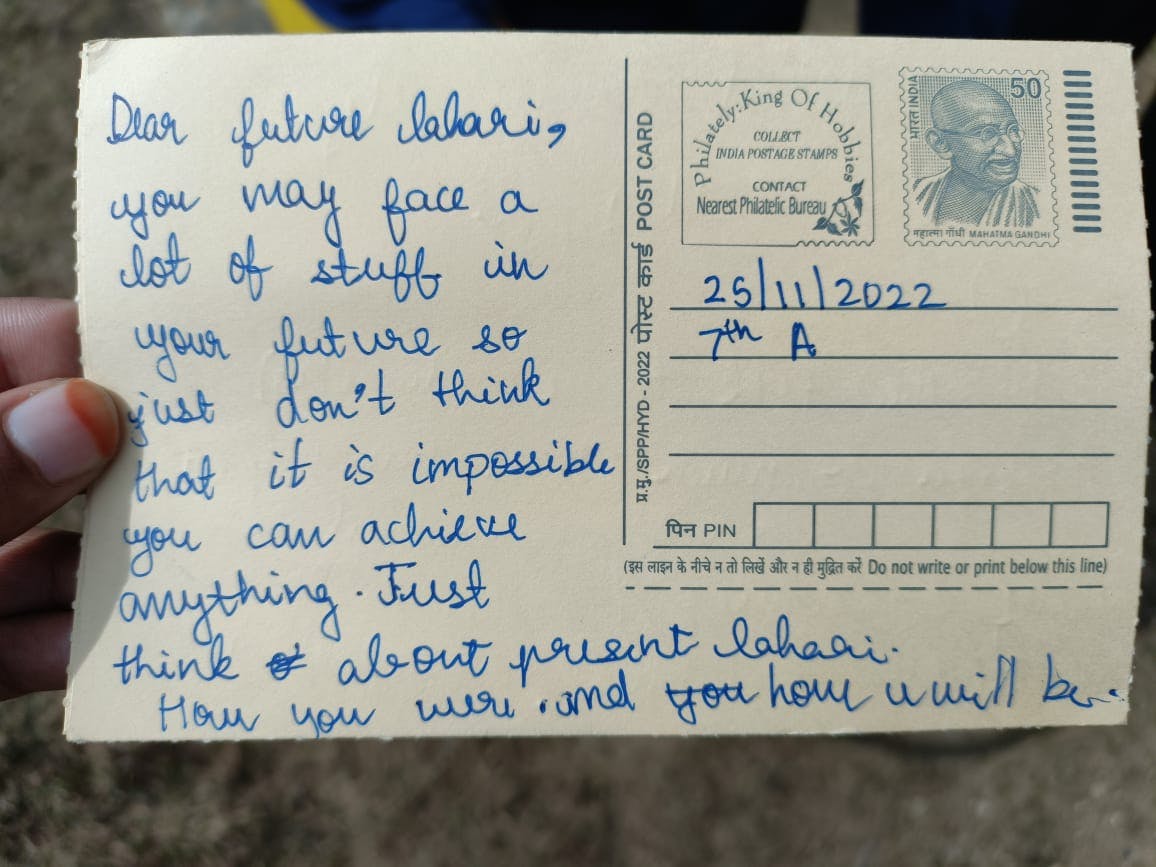 Dear future lahari,
you may face a
lot of stuff in
your future so
just don't think
that it is impossible
you can achieve
anything. Just
think of about present lahari.
How you were and you how u will be.
प्र.मु./SPP/HYD - 2022 पोस्ट कार्ड POST CARD
Philately: King Of Hobbies
COLLECT
INDIA POSTAGE STAMPS
CONTACT
Nearest Philatelic Bureau
भारत INDIA
50
महात्मा गाँधी MAHATMA GANDHI
25/11/2022
7th A
पिन PIN
(इस लाइन के नीचे न तो लिखें और न ही मुद्रित करें Do not write or print below this line)